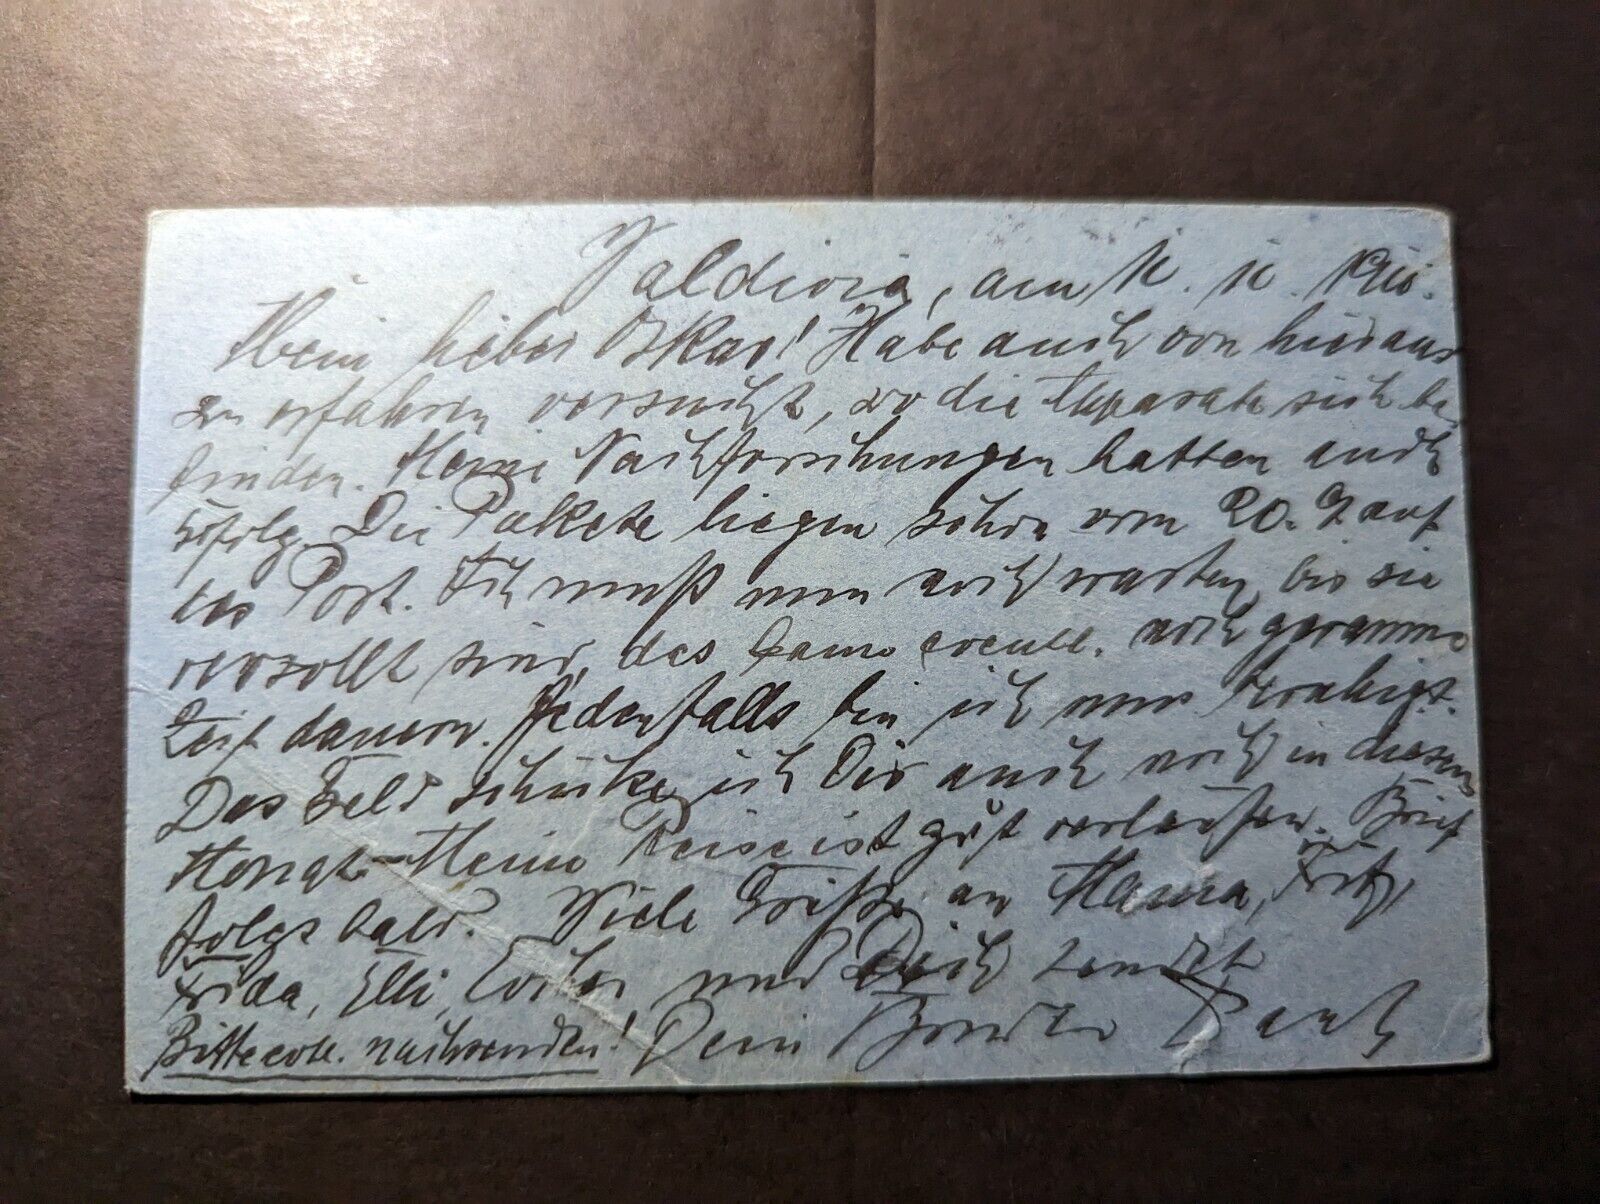 Valdivia, am
Mein lieber Oskar! Habe auch von hier aus
zu erfahren versucht, wo die Apparate sich be
finden. Meine Nachforschungen hatten auch
Erfolg. Die Pakete liegen schon vom 20. 9. auf
der Post. Ich muß nun noch warten, bis sie
verzollt sind, das kann eventl. noch geraume
Zeit dauern. Jedenfalls bin ich nun beruhigt.
Das Geld schicke ich Dir auch noch in diesem
Monat. Meine Reise ist gut verlaufen. Brief
folgt bald. Viele Grüße an Mama, Fritz,
Frida, Elli, und Dich sendet
Bitte evtl. nachsenden! Dein Bruder Paul